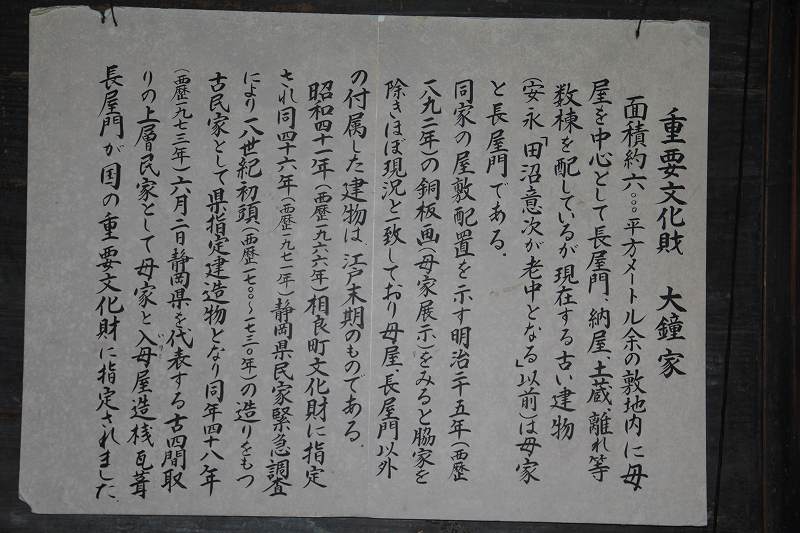 重要文化財　大鐘家
面積約六〇〇〇平方メートル余の敷地内に母
屋を中心として長屋門、納屋、土蔵、離れ等
数棟を配しているが現在する古い建物
(安永「田沼意次が老中となる」以前)は母家
と長屋門である.
同家の屋敷配置を示す明治二十五年(西歴
一八九二年)の銅板画(母家展示)をみると脇家を
除きほぼ現況と一致しており母屋、長屋門以外
の付属した建物は、江戸末期のものである.
昭和四十一年(西歴一九六六年)相良町文化財に指定
され同四十六年(西歴一九七一年)静岡県民家緊急調査
により一八世紀初頭(西歴一七〇〇〜一七三〇年)の造りをもつ
古民家として県指定建造物となり同年四十八年
(西歴一九七三年)六月二日静岡県を代表する古四間取
りの上層民家として母家と入母屋造桟瓦葺
長屋門が国の重要文化財に指定されました.